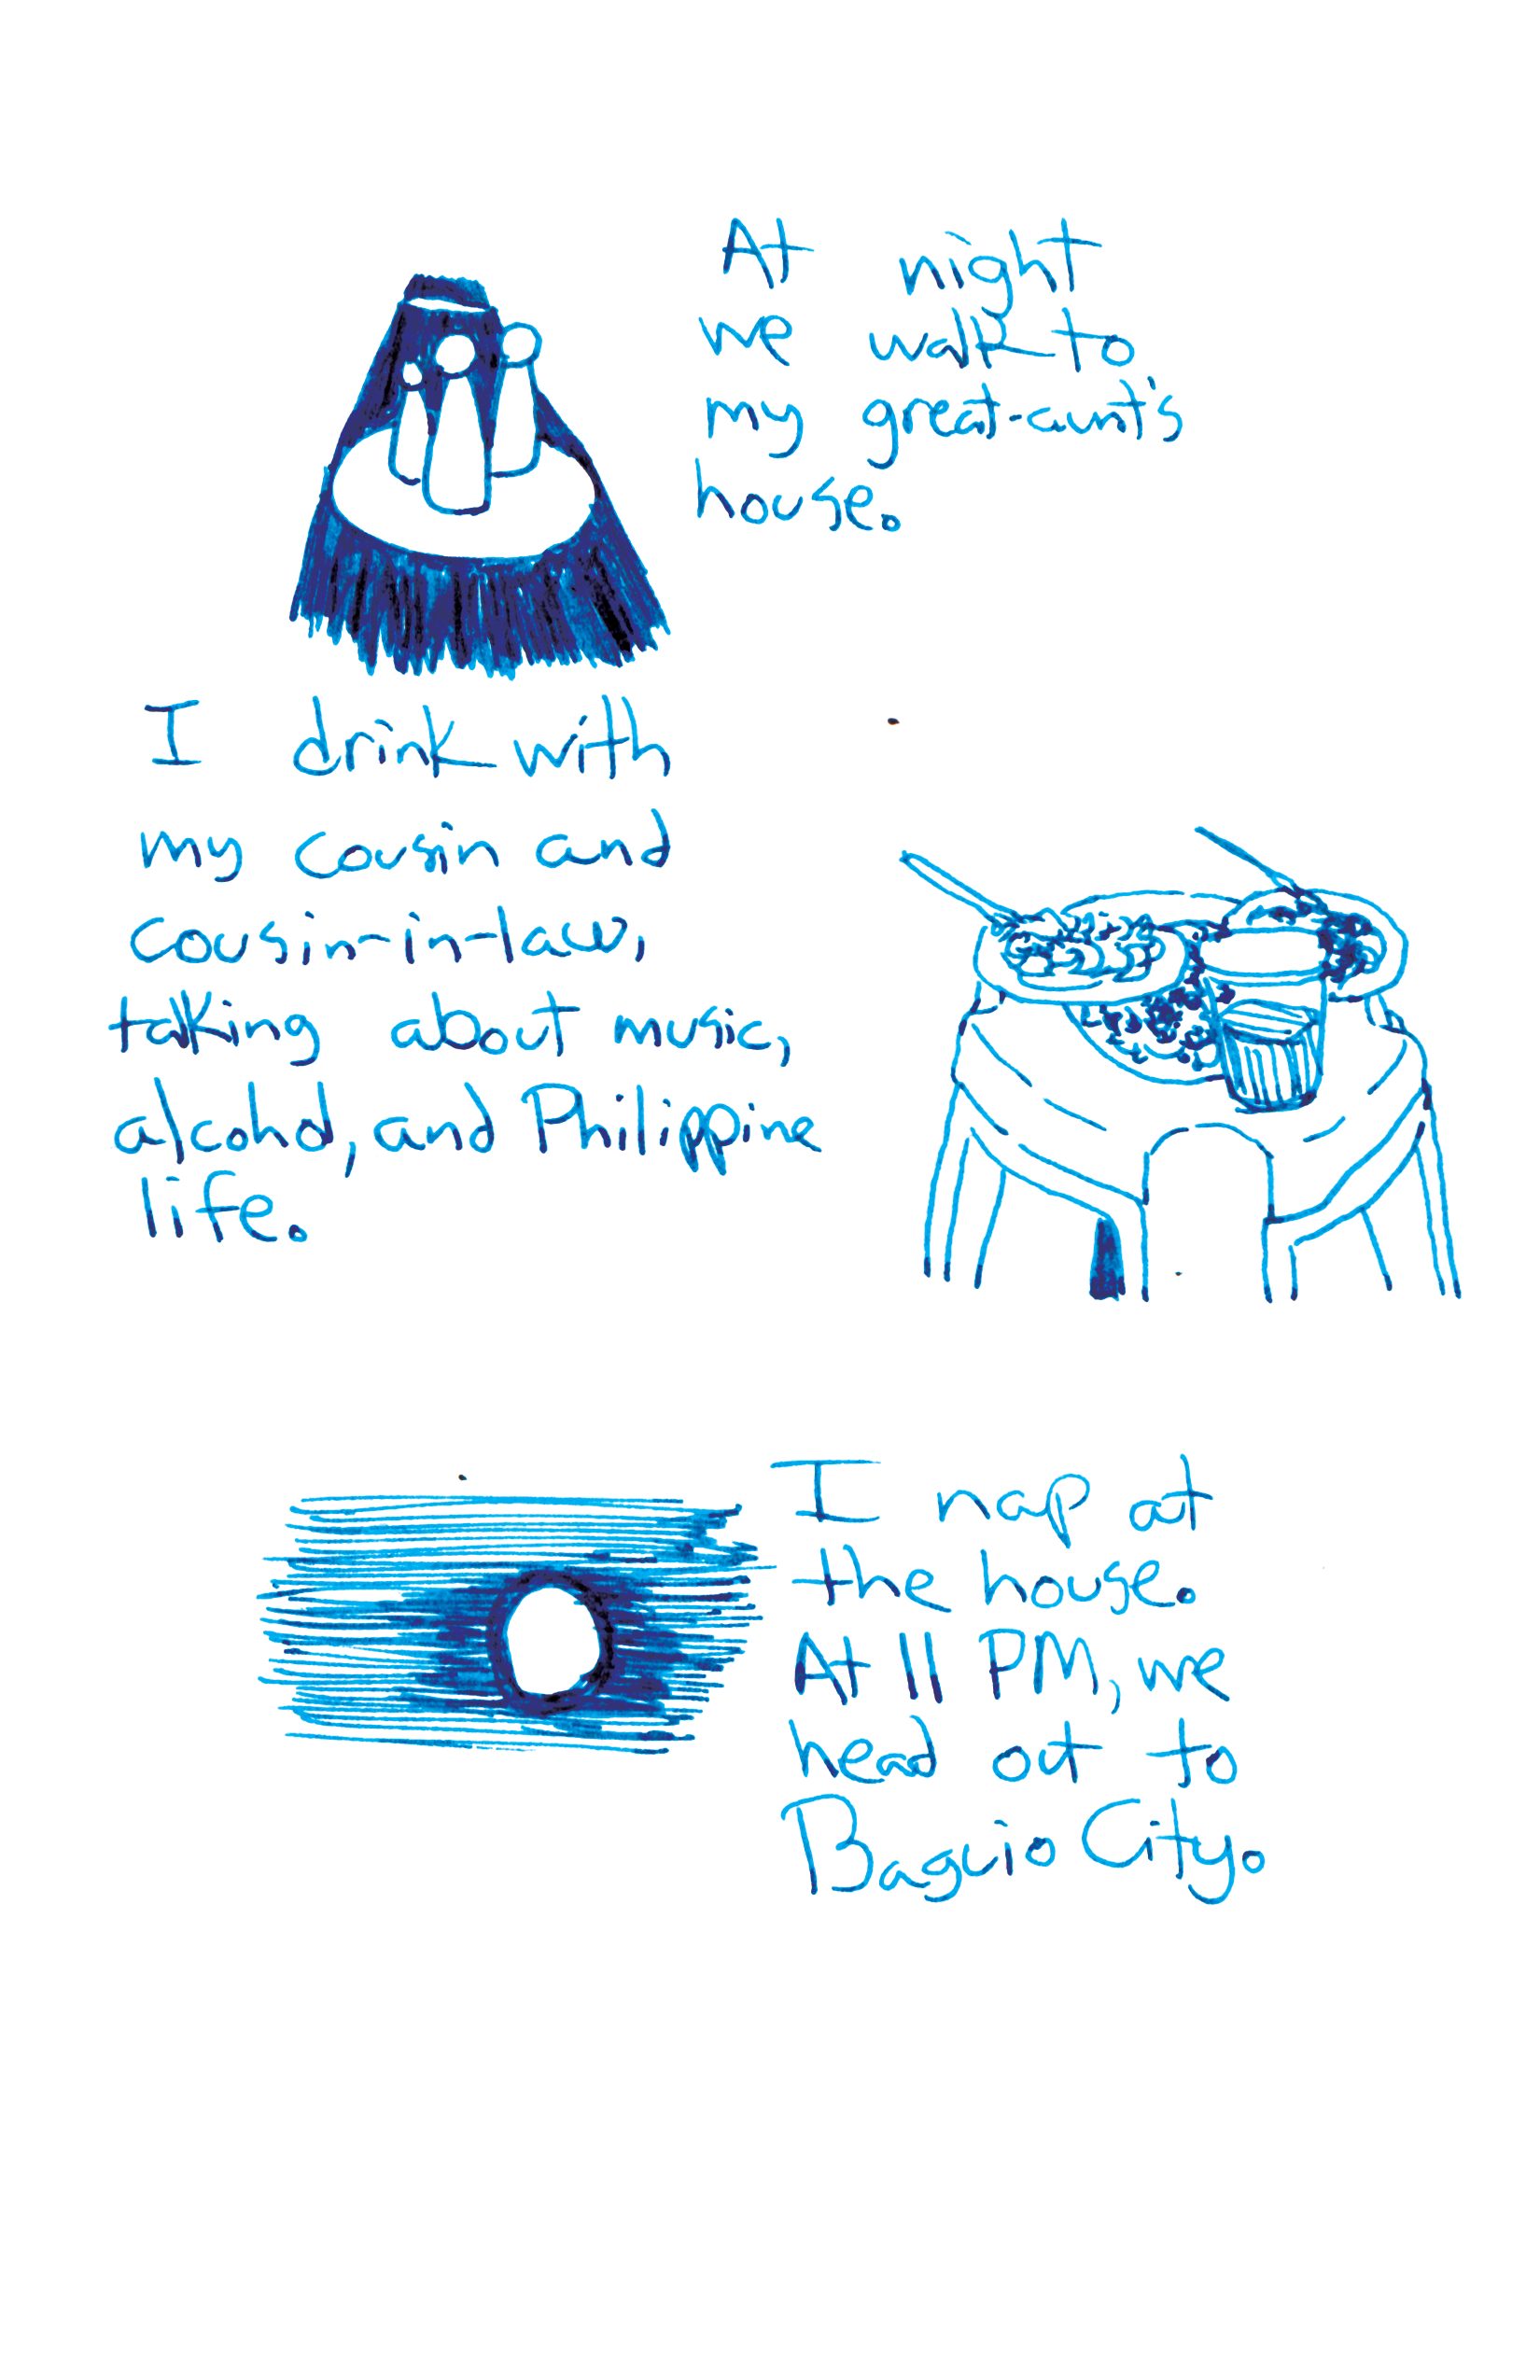 At night
we walk to
my great-aunt's
house.
I drink with
my cousin and
cousin-in-law,
talking about music,
alcohol, and Philippine
life.
I nap at
the house.
At 11 PM, we
head out to
Baguio City.